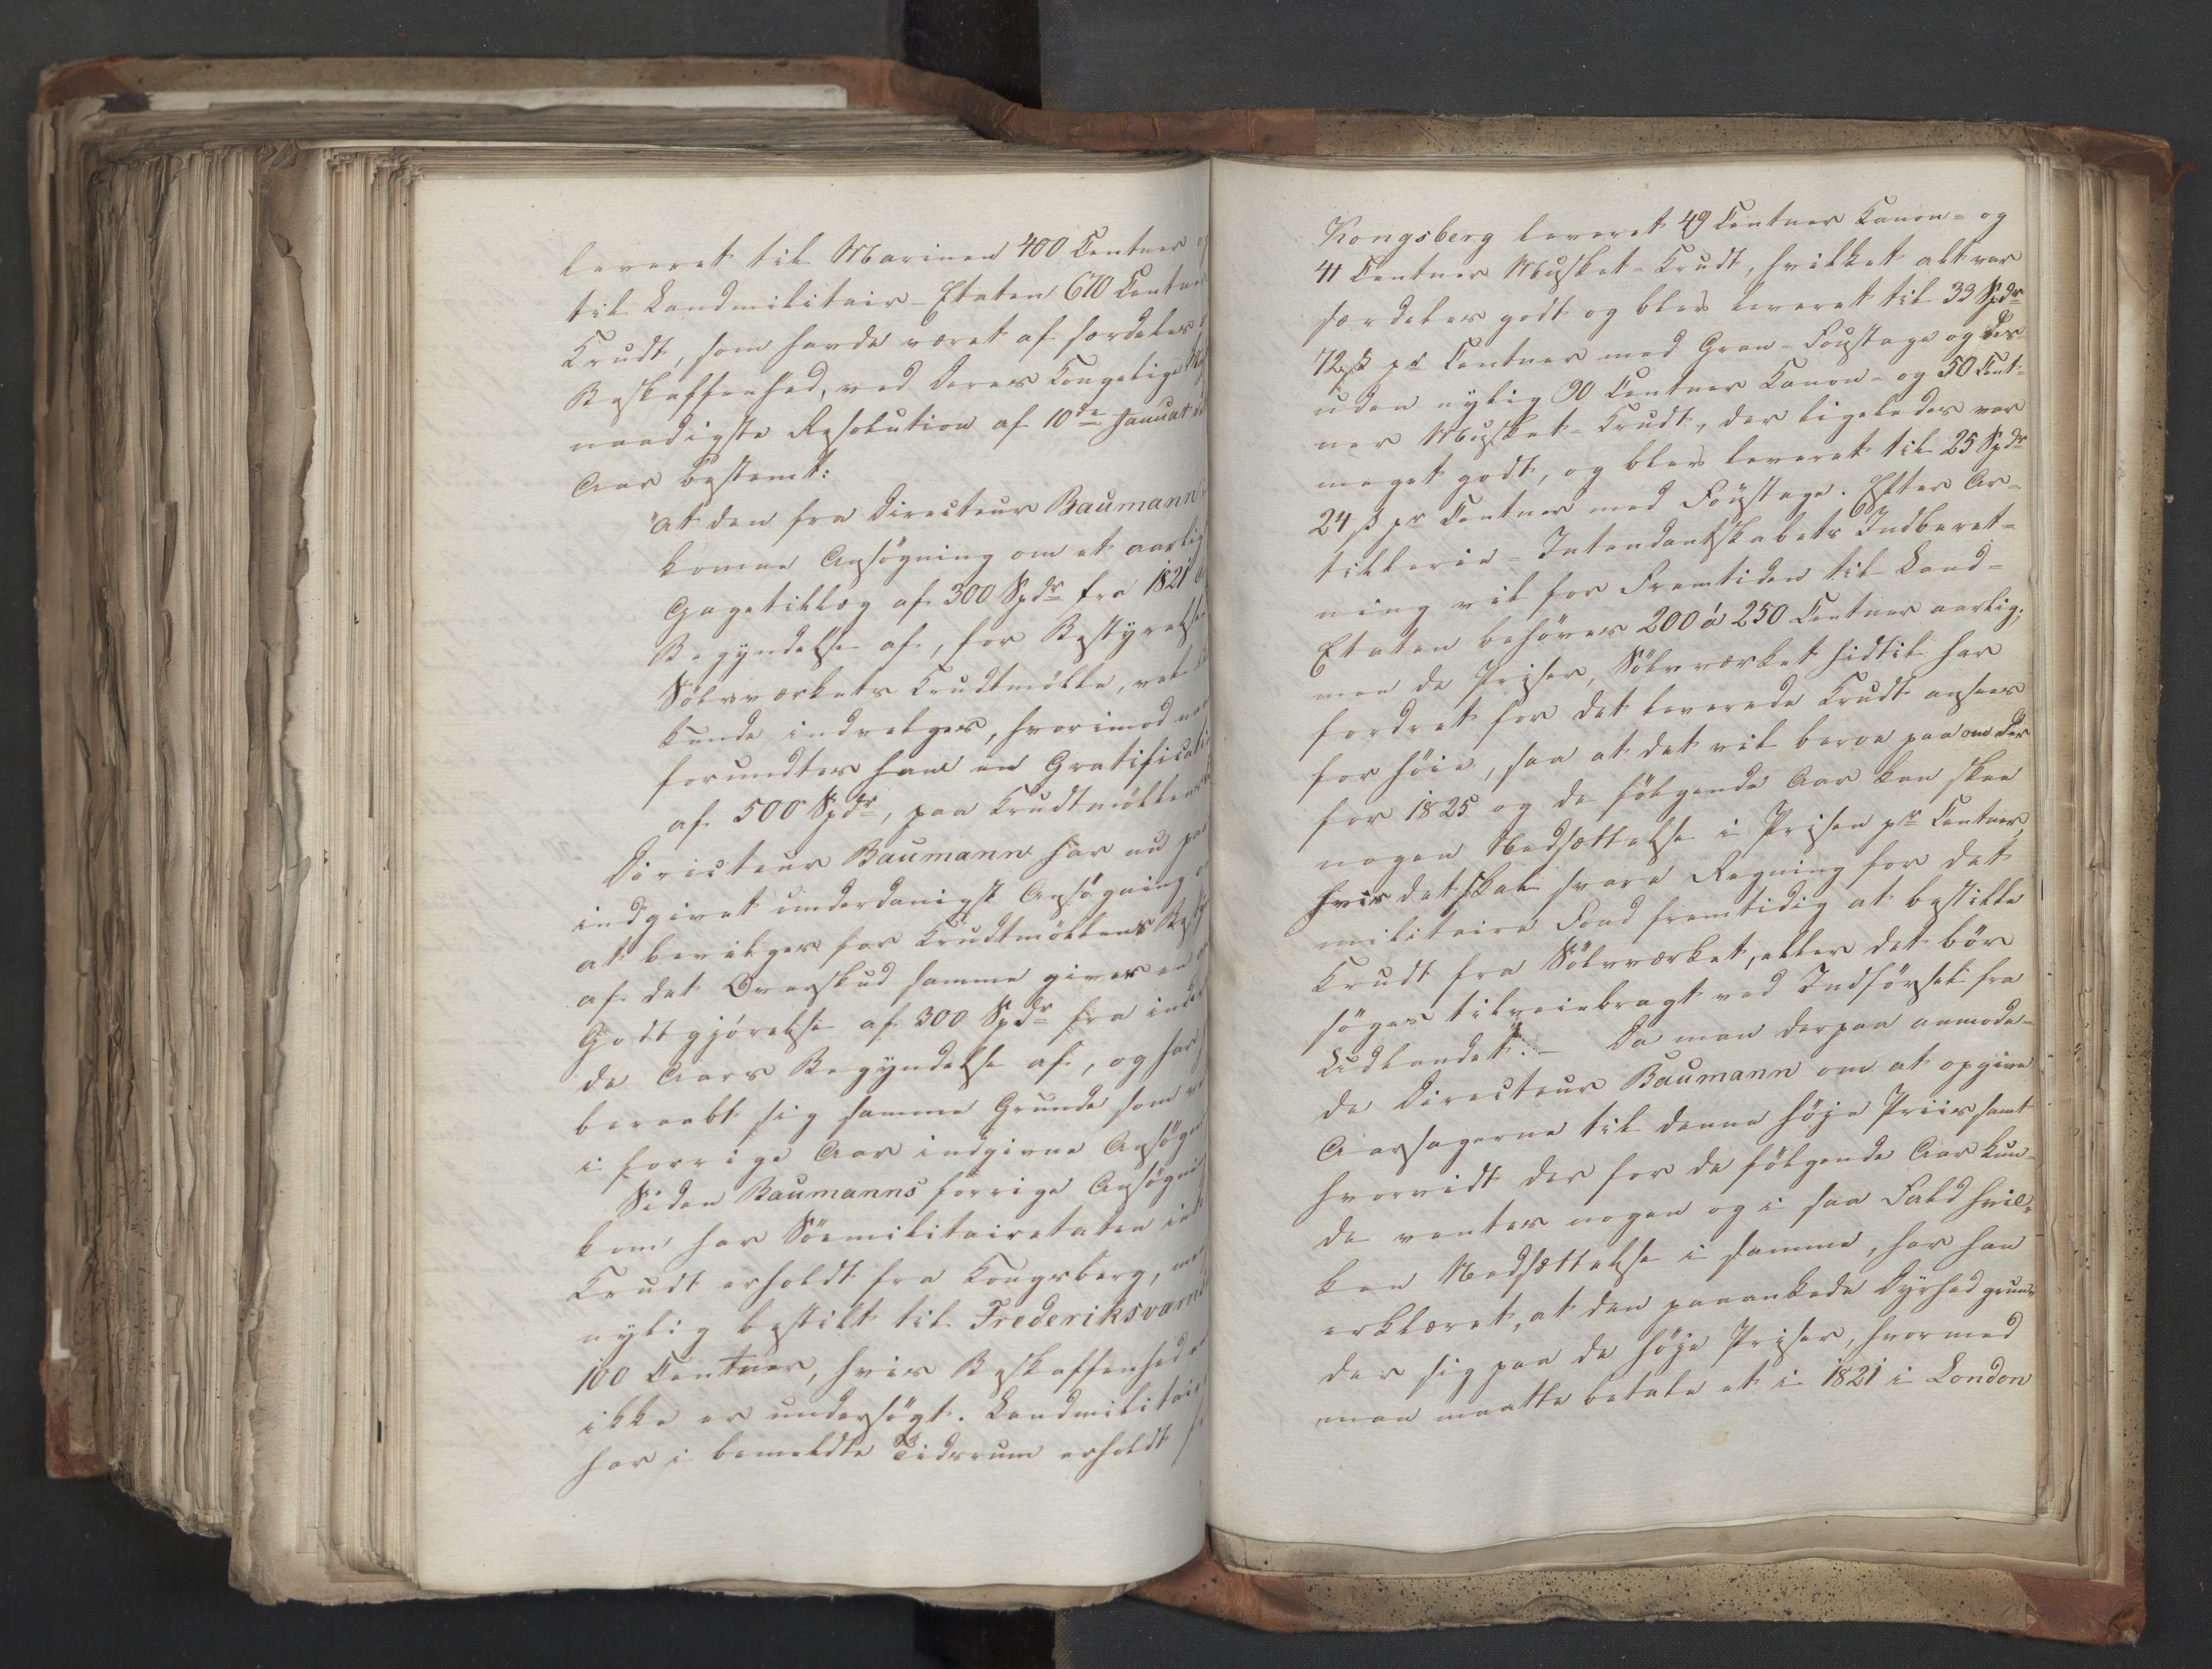 leveret til Marinen 400 Centner
til Landmilitair-Etaten 670 Centner
Krudt, som havde været af særdeles
Beskaffenhed, ved Deres Kongelige
naadigste Resolution af 10de Januar
Aar bestemt:
"at den fra Directeur Baumann
komne Ansøgning om et aarligt
Gagetillæg af 300 Spdr fra 1821
Begyndelse af, for Bestyrelse
Sølvværkets Krudtmølle, vel
kunde indvelges, hvorimod
forundtes ham en Gratification
af 500 Spdr, paa Krudtmøllens
Directeur Baumann har nu
indgivet underdanigst Ansøgning
at bevilges for Krudtmøllens
af det Overskud samme giver en
Godtgjørelse af 300 Spdr fra
de Aars Begyndelse af, og har
beraabt sig samme Grunde som
i forrige Aar indgivne
Siden Baumanns forrige
kom har Söemilitairetaten
Krudt erholdt fra Kongsberg,
nylig bestilt til Frederiksværn
100 Centner, hvis Beskaffenhed
ikke er undersøgt. Landmilitair
har i bemeldte Tidsrum erholdt
Kongsberg leveret 49 Centner Kanon- og
41 Centner Musket-Krudt, hvilket alt var
særdeles godt og blev leveret til 33 Spdr
72 ß pr Centner med Gran-Foustage og des-
uden nylig 90 Centner Kanon- og 50 Cent-
ner Musket-Krudt, der ligeledes var
meget godt, og blev leveret til 25 Spdr
24 ß pr Centner med Foustage. Efter Ar-
tillerie-Intendantskabets Indberet-
ning vil for Fremtiden til Land-
Etaten behøves 200 á 250 Centner aarlig;
men de Priser, Sølvværket hidtil har
fordret for det leverede Krudt ansees
for høie, saa at det vil beroe paa om der
for 1825 og de følgende Aar kan skee
nogen Nedsættelse i Prisen pr Centner,
hvis det skal svare Regning for det
militaire Fond fremtidig at bestille
Krudt fra Sølvværket, eller det bør
søges tilveiebragt ved Indførsel fra
Udlandet. – Da man derpaa anmode-
de Directeur Baumann om at opgive
Aarsagerne til denne høje Priis samt
hvorvidt der for de følgende Aar kun-
de ventes nogen og i saa Fald hvil-
ken Nedsættelse i samme, har han
erklæret, at den paaankede Dyrhed grun-
der sig paa de høje Priser, hvormed
man maatte betale et i 1821 i London